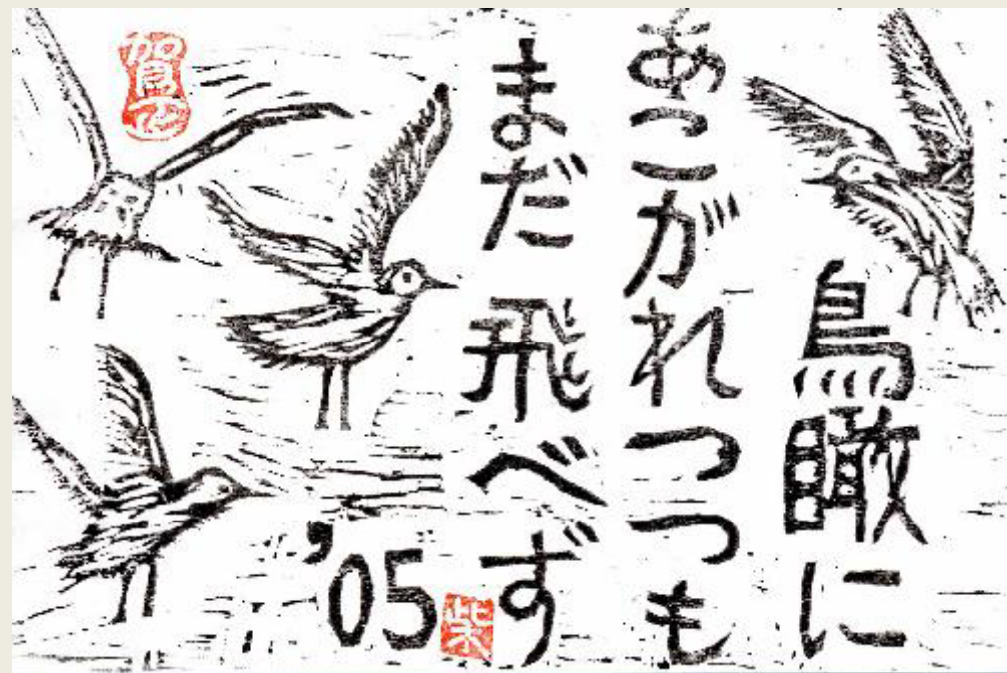 鳥瞰に
あこがれつつも
まだ飛べず
'05
柴
賀正